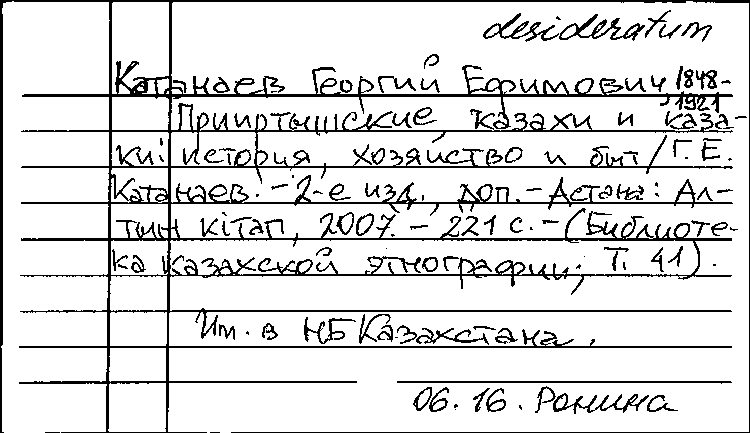 desideratum
Катанаев Георгий Ефимович, 1848-
1921
Прииртышские казахи и каза-
ки: история, хозяйство и быт / Г. Е.
Катанаев. - 2-е изд., доп. - Астана: Ал-
тын кітап, 2007. - 221 с. - (Библиоте-
ка казахской этнографии; Т. 41).
Им. в НБ Казахстана.
06. 16. Ронина